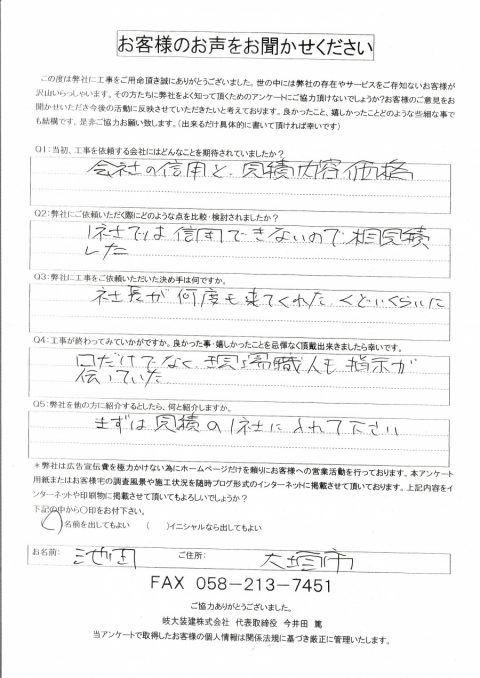 お客様のお声をお聞かせください
この度は弊社に工事をご用命頂き誠にありがとうございました。世の中には弊社の存在やサービスをご存知ないお客様が
沢山いらっしゃいます。その方たちに弊社をよく知って頂くためのアンケートにご協力頂けないでしょうか?お客様のご意見をお
聞かせいただき今後の活動に反映させていただきたいと考えております。良かったこと、嬉しかったことどのような些細な事で
も結構です、是非ご協力お願い致します。(出来るだけ具体的に書いて頂ければ幸いです)
Q1:当初、工事を依頼する会社にはどんなことを期待されていましたか?
会社の信用と、見積内容価格
Q2:弊社にご依頼いただく際にどのような点を比較・検討されましたか?
1社では信用できないので相見積
した
Q3:弊社に工事をご依頼いただいた決め手は何ですか。
社長が何度も来てくれた くどいくらいに
Q4:工事が終わってみていかがですか。良かった事・嬉しかったことを忌憚なく頂戴出来ましたら幸いです。
口だけでなく現場職人も指示が
伝っていた
Q5:弊社を他の方に紹介するとしたら、何と紹介しますか。
まずは見積の1社に入れて下さい
*弊社は広告宣伝費を極力かけない為にホームページだけを頼りにお客様への営業活動を行っております。本アンケート
用紙またはお客様宅の調査風景や施工状況を随時ブログ形式のインターネットに掲載させて頂いております。上記内容をイ
ンターネットや印刷物に掲載させて頂いてもよろしいでしょうか?
下記の中から○印をお付下さい。
(○)名前を出してもよい ( )イニシャルなら出してもよい
お名前: 池田 ご住所: 大垣市
FAX 058-213-7451
ご協力ありがとうございました。
岐大装建株式会社 代表取締役 今井田 篤
当アンケートで取得したお客様の個人情報は関係法規に基づき厳正に管理いたします。